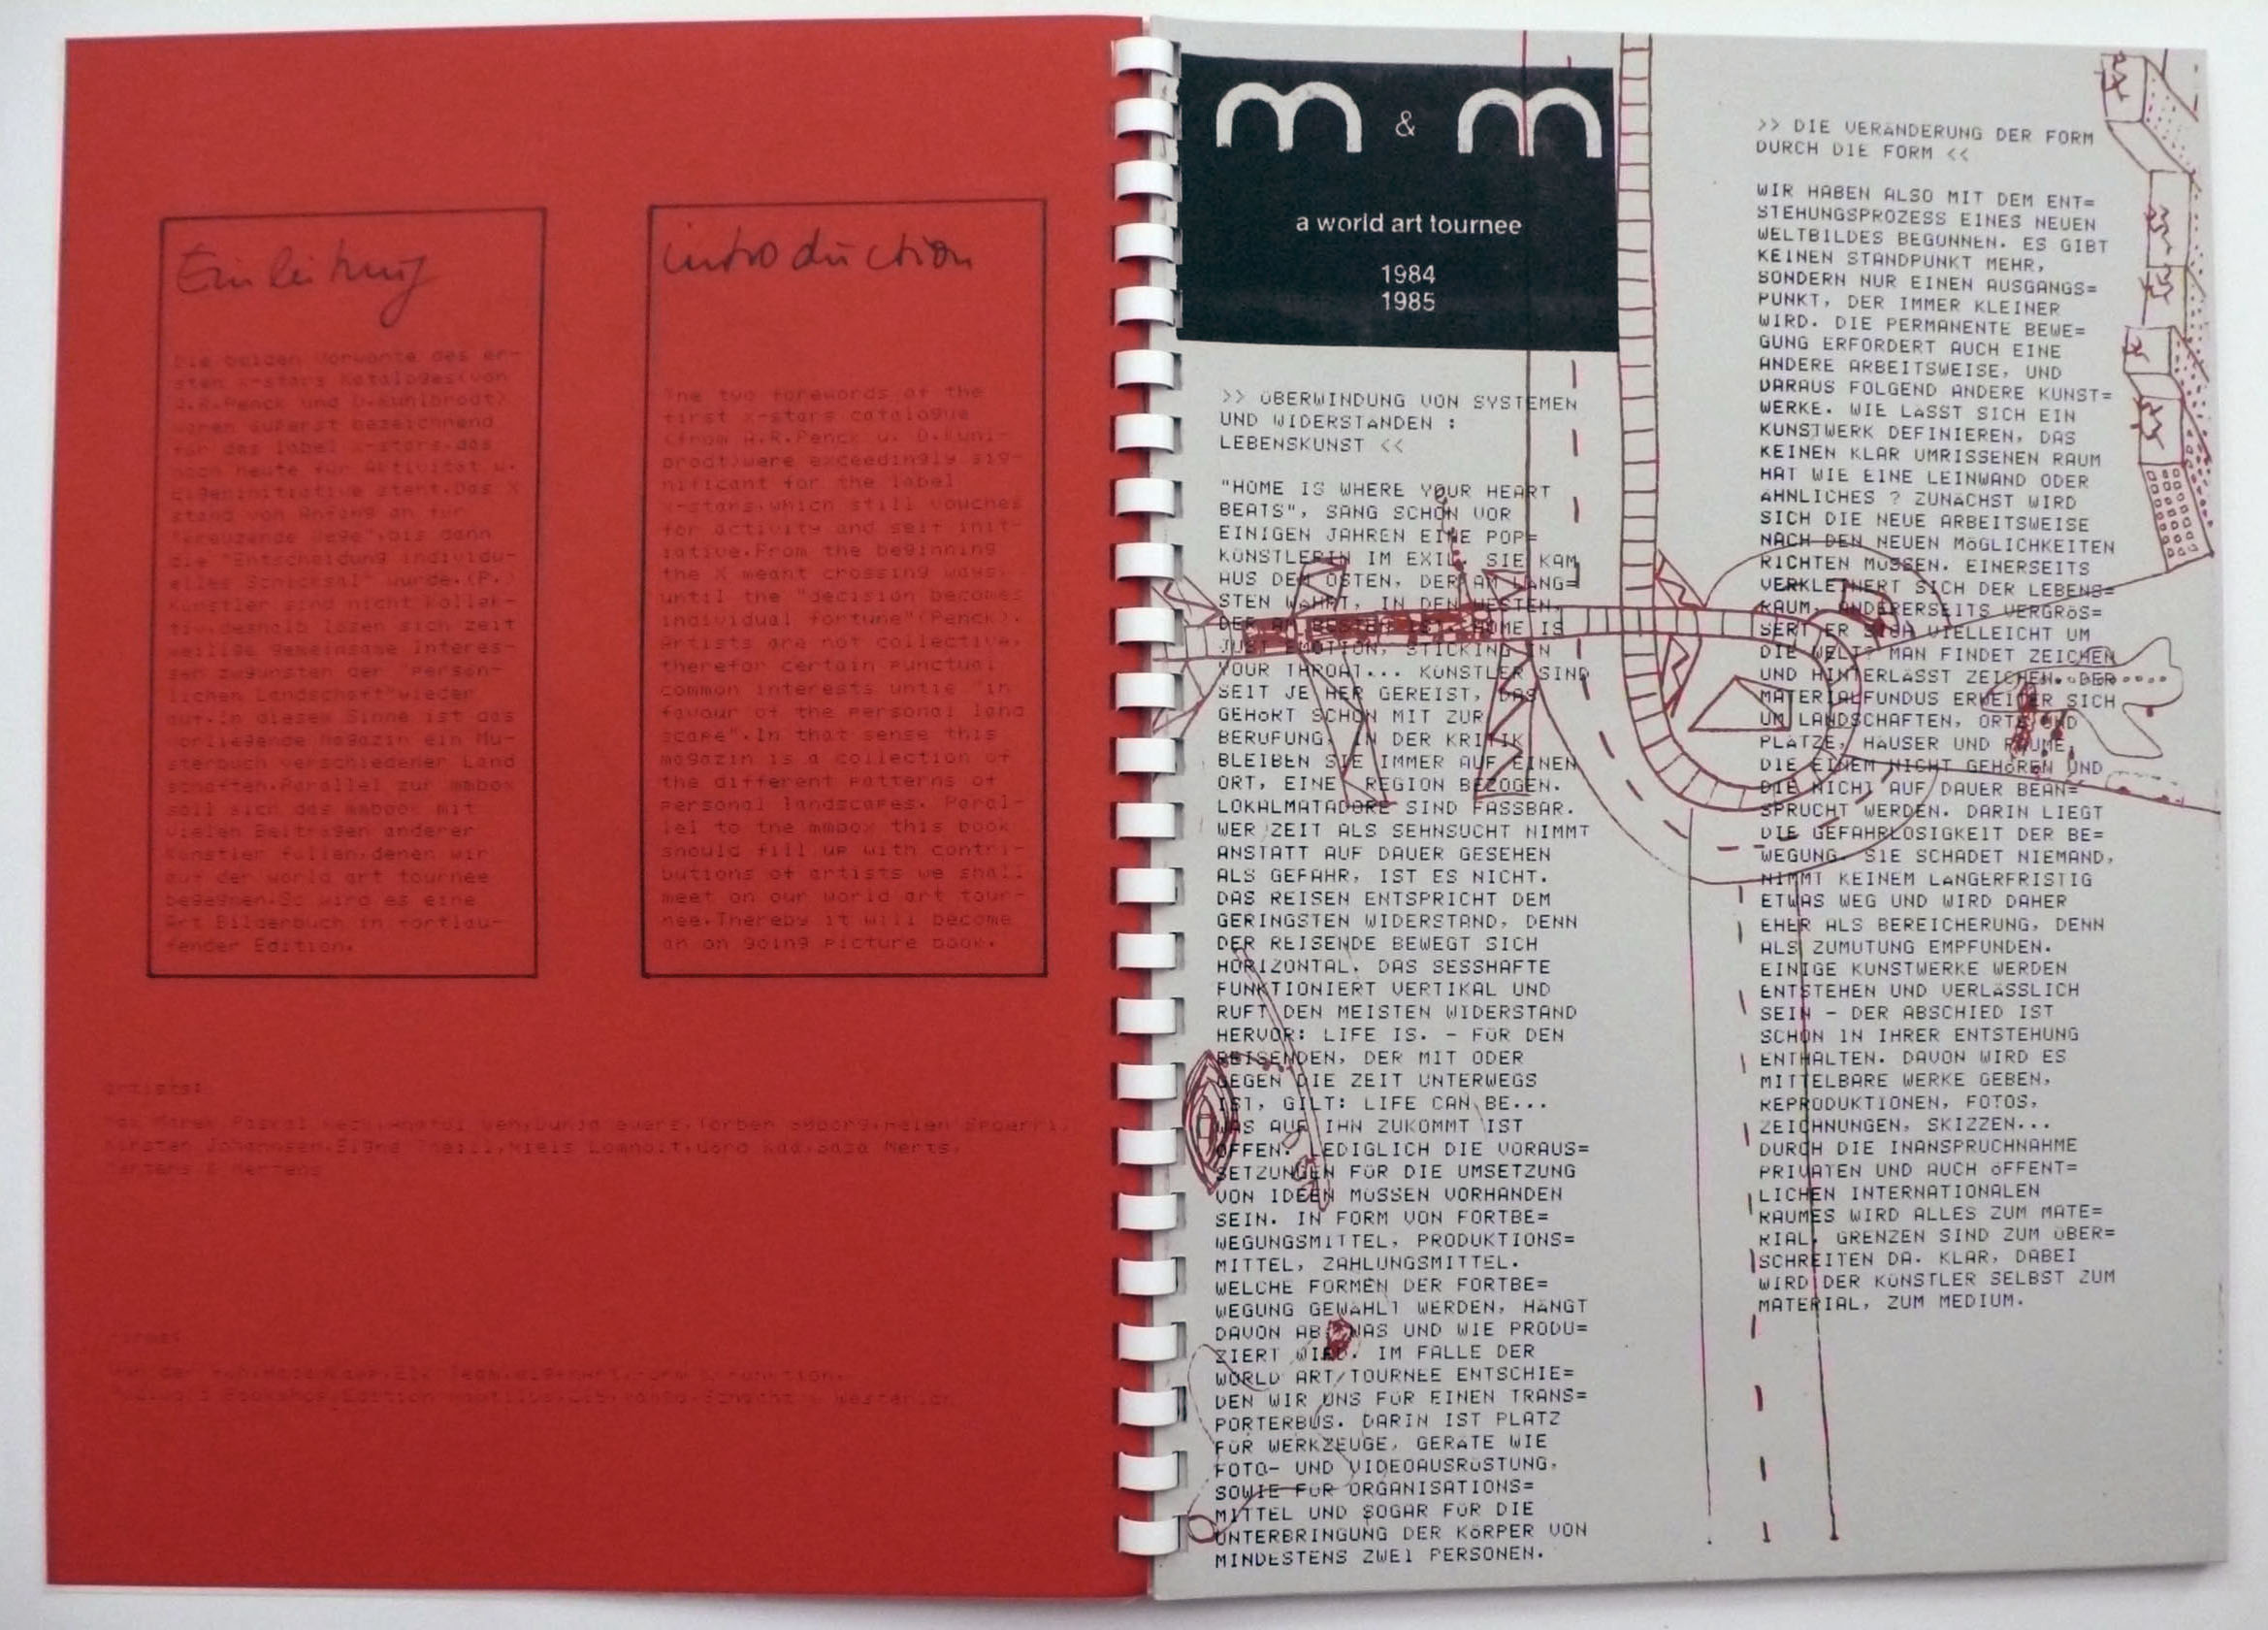 Einleitung
Die beiden Vorworte des er-
sten x-stars Kataloges(von
A.R.Penck und D.Kuhlbrodt)
waren äußerst bezeichnend
für das label x-stars,das
noch heute für Aktivität u.
Eigeninitiative steht.Das X
stand von Anfang an für
"kreuzende Wege",bis dann
die "Entscheidung individu-
elles Schicksal" wurde.(P.)
Künstler sind nicht kollek-
tiv,deshalb lösen sich zeit
weilige gemeinsame Interes-
sen zugunsten der "persön-
lichen Landschaft"wieder
auf.In diesem Sinne ist das
vorliegende Magazin ein Mu-
sterbuch verschiedener Land
schaften.Parallel zur mmbox
soll sich das mmbook mit
vielen Beiträgen anderer
Künstler füllen,denen wir
auf der world art tournee
begegnen.So wird es eine
Art Bilderbuch in fortlau-
fender Edition.
introduction
The two forewords of the
first x-stars catalogue
(from A.R.Penck u. D.Kuhl-
brodt)were exceedingly sig-
nificant for the label
x-stars,which still vouches
for activity and self init-
iative.From the beginning
the X meant crossing ways,
until the "decision becomes
individual fortune"(Penck).
Artists are not collective,
therefor certain punctual
common interests untie "in
favour of the personal land
scape".In that sense this
magazin is a collection of
the different patterns of
personal landscapes. Paral-
lel to the mmbox this book
should fill up with contri-
butions of artists we shall
meet on our world art tour-
nee.Thereby it will become
an on going picture book.
artists:
Kirsten Johannsen,
Mertens & Mertens
m & m
a world art tournee
1984
1985
>> ÜBERWINDUNG VON SYSTEMEN
UND WIDERSTÄNDEN :
LEBENSKUNST <<
"HOME IS WHERE YOUR HEART
BEATS", SANG SCHON VOR
EINIGEN JAHREN EINE POP=
KÜNSTLERIN IM EXIL. SIE KAM
AUS DEM OSTEN, DER AM LÄNG=
STEN WÄHRT, IN DEN WESTEN,
DER AM BESTEN IST. HOME IS
JUST EMOTION, STICKING IN
YOUR THROAT... KÜNSTLER SIND
SEIT JE HER GEREIST, DAS
GEHÖRT SCHON MIT ZUR
BERUFUNG. IN DER KRITIK
BLEIBEN SIE IMMER AUF EINEN
ORT, EINE REGION BEZOGEN.
LOKALMATADORE SIND FASSBAR.
WER ZEIT ALS SEHNSUCHT NIMMT
ANSTATT AUF DAUER GESEHEN
ALS GEFAHR, IST ES NICHT.
DAS REISEN ENTSPRICHT DEM
GERINGSTEN WIDERSTAND, DENN
DER REISENDE BEWEGT SICH
HORIZONTAL. DAS SESSHAFTE
FUNKTIONIERT VERTIKAL UND
RUFT DEN MEISTEN WIDERSTAND
HERVOR: LIFE IS. - FÜR DEN
REISENDEN, DER MIT ODER
GEGEN DIE ZEIT UNTERWEGS
IST, GILT: LIFE CAN BE...
WAS AUF IHN ZUKOMMT IST
OFFEN. LEDIGLICH DIE VORAUS=
SETZUNGEN FÜR DIE UMSETZUNG
VON IDEEN MÜSSEN VORHANDEN
SEIN. IN FORM VON FORTBE=
WEGUNGSMITTEL, PRODUKTIONS=
MITTEL, ZAHLUNGSMITTEL.
WELCHE FORMEN DER FORTBE=
WEGUNG GEWÄHLT WERDEN, HÄNGT
DAVON AB, WAS UND WIE PRODU=
ZIERT WIRD. IM FALLE DER
WORLD ART TOURNEE ENTSCHIE=
DEN WIR UNS FÜR EINEN TRANS=
PORTERBUS. DARIN IST PLATZ
FÜR WERKZEUGE, GERÄTE WIE
FOTO- UND VIDEOAUSRÜSTUNG,
SOWIE FÜR ORGANISATIONS=
MITTEL UND SOGAR FÜR DIE
UNTERBRINGUNG DER KÖRPER VON
MINDESTENS ZWEI PERSONEN.
>> DIE VERÄNDERUNG DER FORM
DURCH DIE FORM <<
WIR HABEN ALSO MIT DEM ENT=
STEHUNGSPROZESS EINES NEUEN
WELTBILDES BEGONNEN. ES GIBT
KEINEN STANDPUNKT MEHR,
SONDERN NUR EINEN AUSGANGS=
PUNKT, DER IMMER KLEINER
WIRD. DIE PERMANENTE BEWE=
GUNG ERFORDERT AUCH EINE
ANDERE ARBEITSWEISE, UND
DARAUS FOLGEND ANDERE KUNST=
WERKE. WIE LÄSST SICH EIN
KUNSTWERK DEFINIEREN, DAS
KEINEN KLAR UMRISSENEN RAUM
HAT WIE EINE LEINWAND ODER
ÄHNLICHES ? ZUNÄCHST WIRD
SICH DIE NEUE ARBEITSWEISE
NACH DEN NEUEN MÖGLICHKEITEN
RICHTEN MÜSSEN. EINERSEITS
VERKLEINERT SICH DER LEBENS=
RAUM, ANDERERSEITS VERGRÖS=
SERT ER SICH VIELLEICHT UM
DIE WELT? MAN FINDET ZEICHEN
UND HINTERLÄSST ZEICHEN. DER
MATERIALFUNDUS ERWEITER SICH
UM LANDSCHAFTEN, ORTE UND
PLÄTZE, HÄUSER UND RÄUME,
DIE EINEM NICHT GEHÖREN UND
DIE NICHT AUF DAUER BEAN=
SPRUCHT WERDEN. DARIN LIEGT
DIE GEFAHRLOSIGKEIT DER BE=
WEGUNG. SIE SCHADET NIEMAND,
NIMMT KEINEM LÄNGERFRISTIG
ETWAS WEG UND WIRD DAHER
EHER ALS BEREICHERUNG, DENN
ALS ZUMUTUNG EMPFUNDEN.
EINIGE KUNSTWERKE WERDEN
ENTSTEHEN UND VERLÄSSLICH
SEIN - DER ABSCHIED IST
SCHON IN IHRER ENTSTEHUNG
ENTHALTEN. DAVON WIRD ES
MITTELBARE WERKE GEBEN,
REPRODUKTIONEN, FOTOS,
ZEICHNUNGEN, SKIZZEN...
DURCH DIE INANSPRUCHNAHME
PRIVATEN UND AUCH ÖFFENT=
LICHEN INTERNATIONALEN
RAUMES WIRD ALLES ZUM MATE=
RIAL. GRENZEN SIND ZUM ÜBER=
SCHREITEN DA. KLAR, DABEI
WIRD DER KÜNSTLER SELBST ZUM
MATERIAL, ZUM MEDIUM.